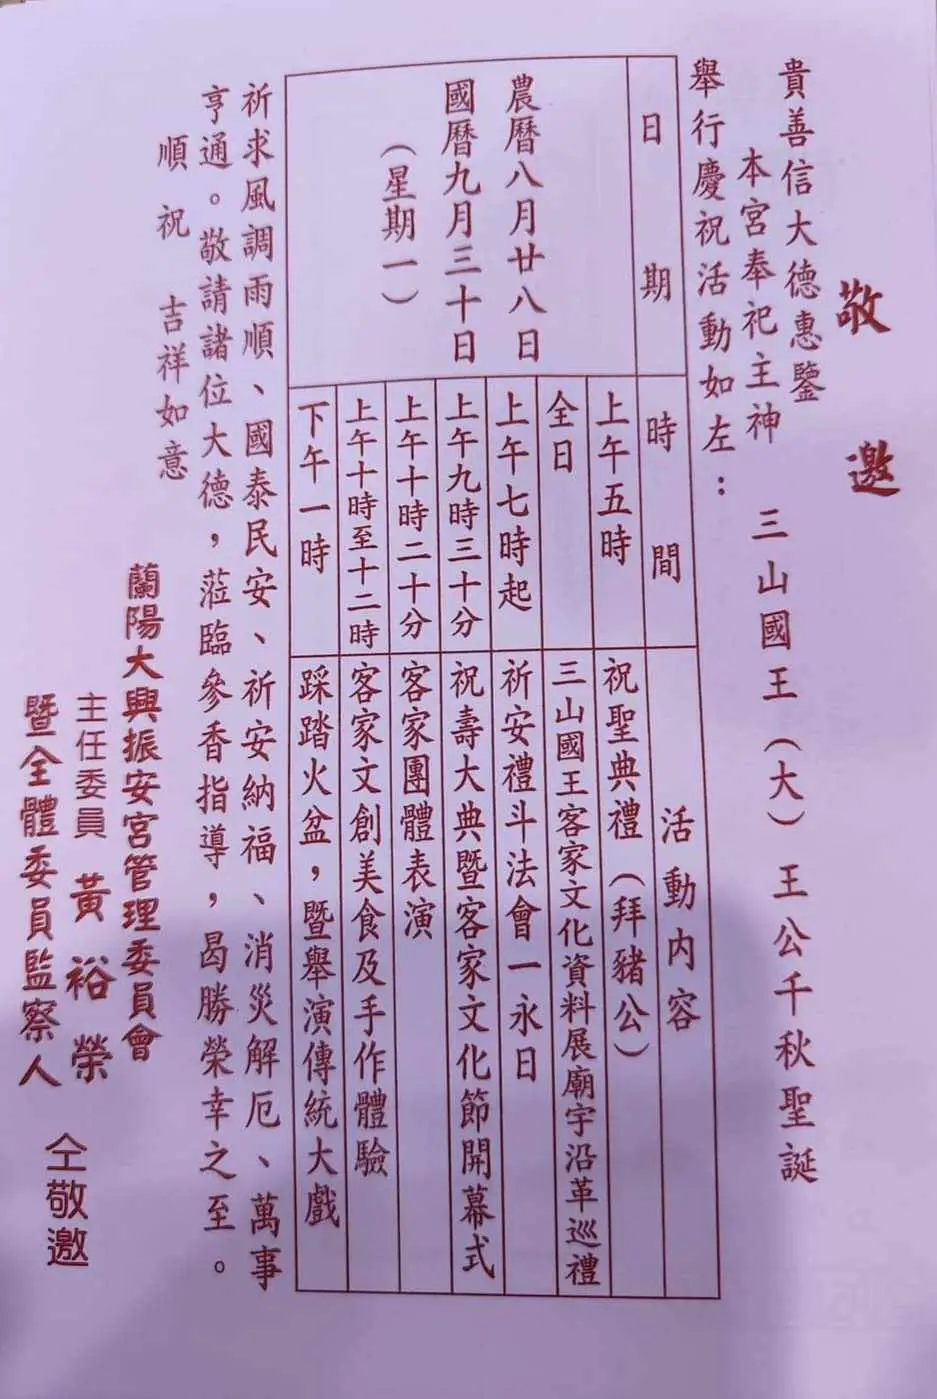 敬邀
貴善信大德惠鑒
本宮奉祀主神 三山國王（大）王公千秋聖誕
舉行慶祝活動如左：
日期
時間
活動內容
農曆八月廿八日
國曆九月三十日
（星期一）
上午五時
祝聖典禮（拜豬公）
全日
三山國王客家文化資料展廟宇沿革巡禮
上午七時起
祈安禮斗法會一永日
上午九時三十分
祝壽大典暨客家文化節開幕式
上午十時二十分
客家團體表演
上午十時至十二時
客家文創美食及手作體驗
下午一時
踩踏火盆，暨舉演傳統大戲
祈求風調雨順、國泰民安、祈安納福、消災解厄、萬事
亨通。敬請諸位大德，蒞臨參香指導，曷勝榮幸之至。
順祝 吉祥如意
蘭陽大興振安宮管理委員會
主任委員 黃裕榮
暨全體委員監察人
仝敬邀